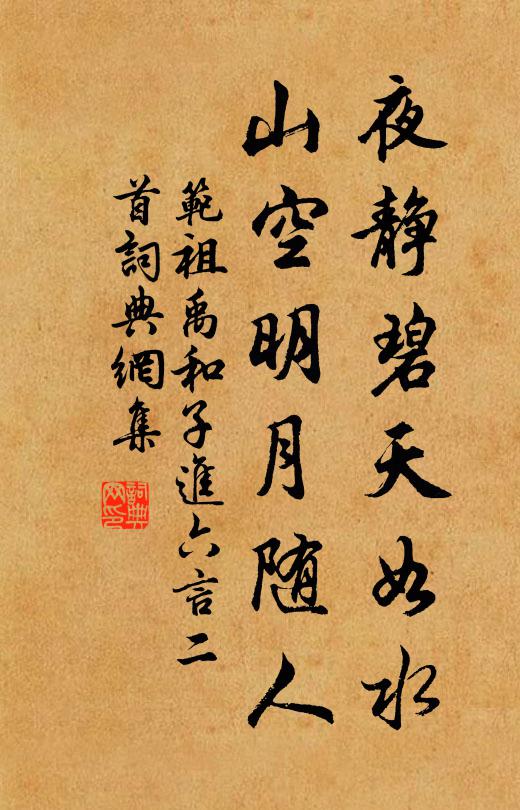 夜静碧天如水
山空明月随人
範祖禹和子進六言二
首詞典網集
詞典
网印